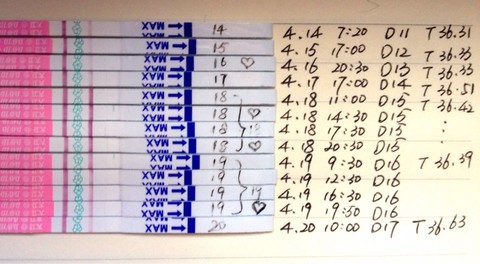 MAX 14 4.14 7:20 D11 T36.31
MAX 15 4.15 17:00 D12 T36.33
MAX 16 ♡ 4.16 20:30 D13 T36.33
MAX 17 4.17 17:00 D14 T36.51
MAX 18 4.18 11:00 D15 T36.42
MAX 18 ♡ 4.18 14:30 D15
MAX 18 18 4.18 17:30 D15
MAX 18 ♡ 4.18 20:30 D15
MAX 19 4.19 9:30 D16 T36.39
MAX 19 4.19 12:30 D16
MAX 19 19 4.19 16:30 D16
MAX 19 ♡ 4.19 19:50 D16
MAX 20 4.20 10:00 D17 T36.63